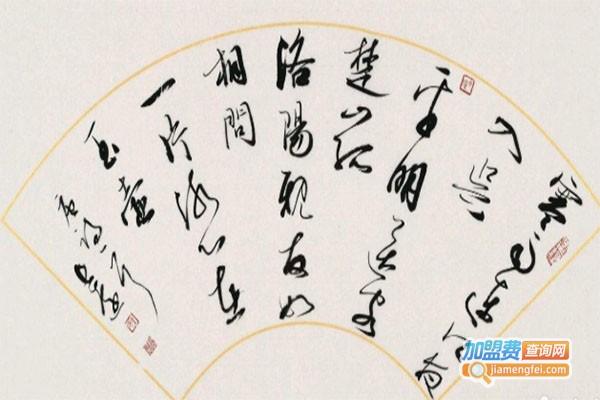 寒雨連江夜
入吳
平明送客
楚山孤
洛陽親友如
相問
一片冰心在
玉壺
唐詩
加盟费查询网
jiamengfei.com